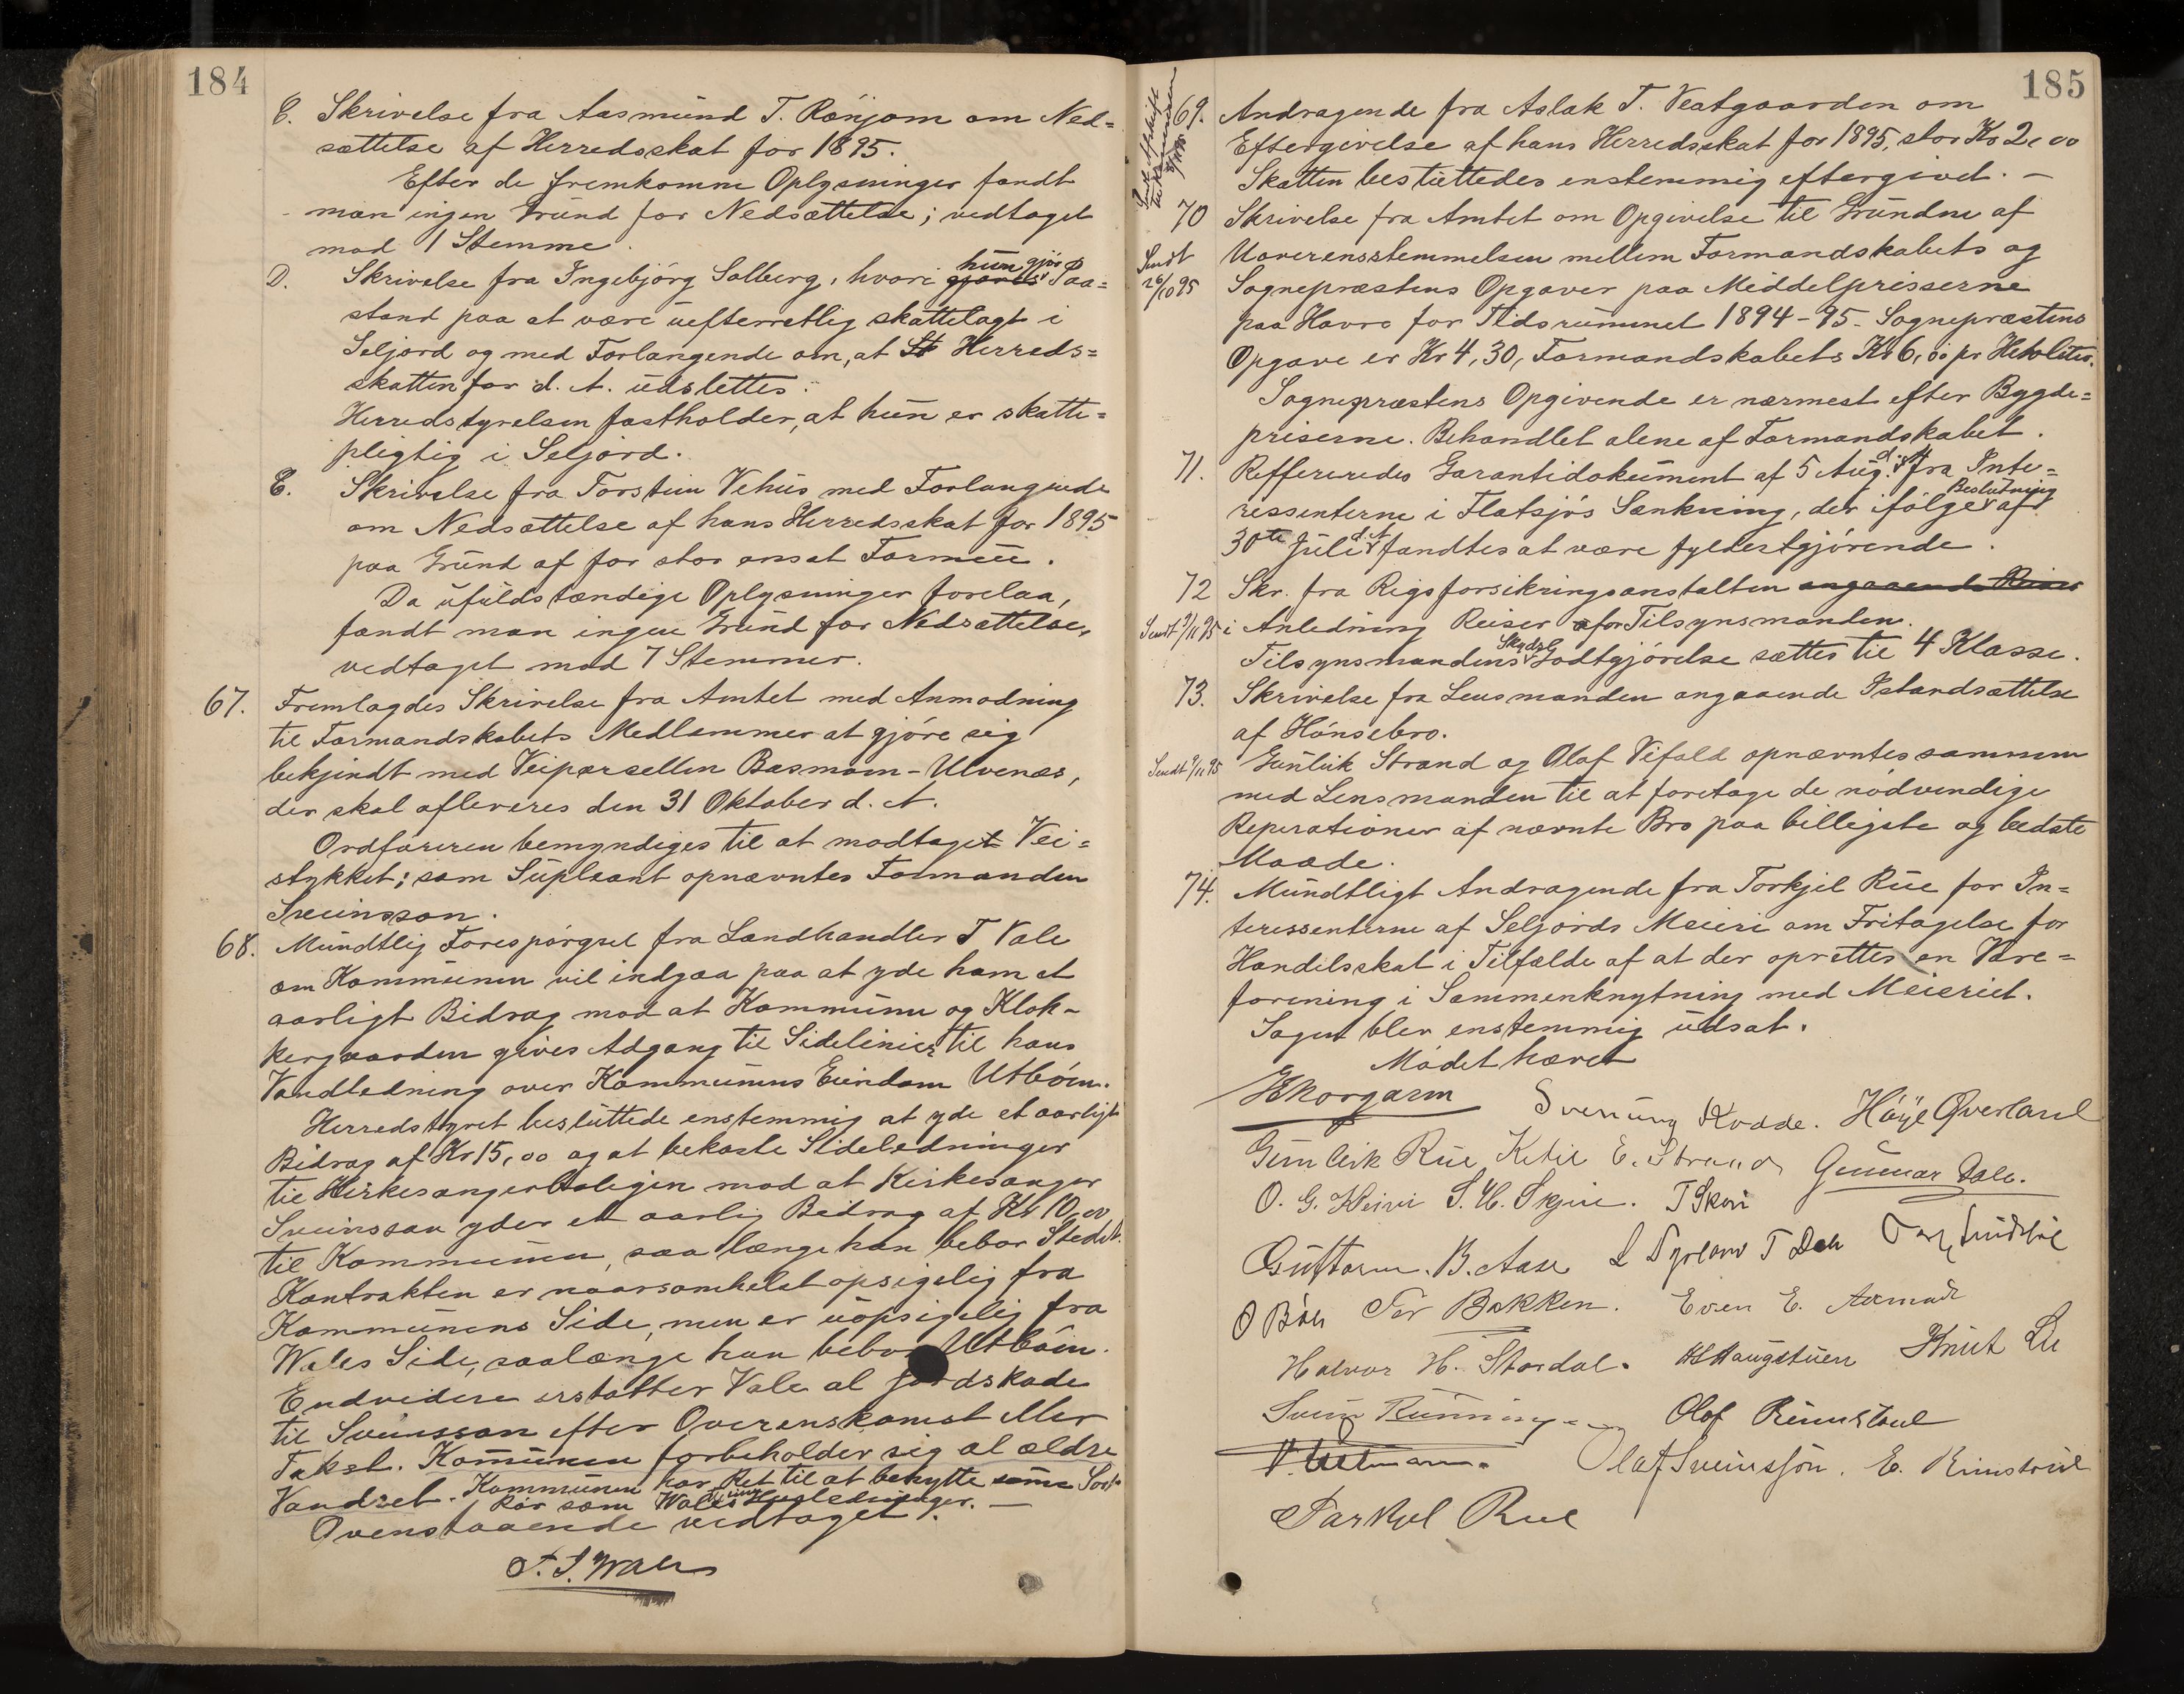 184
C. Skrivelse fra Aasmund T. Rönjom om Ned=
sættelse af Herredsskat for 1895.
Efter de fremkomne Oplysninger fandt
man ingen Grund for Nedsættelse; vedtaget
mod 1 Stemme.
D. Skrivelse fra Ingebjörg Solberg, hvori hun gjör Paa=
stand paa at være uefterretlig skattelagt i
Seljord og med Forlangende om, at Herreds=
skatten for d. A. udslettes.
Herredstyrelsen fastholder, at hun er skatte=
pligtig i Seljord.
E. Skrivelse fra Torstein Vehus med Forlangende
om Nedsættelse af hans Herredsskat for 1895
paa Grund af for stor ansat Formue.
Da ufuldstændige Oplysninger forelaa,
fandt man ingen Grund for Nedsættelse,
vedtaget mod 7 Stemmer.
67. Fremlagdes Skrivelse fra Amtet med Anmodning
til Formandskabets Medlemmer at gjöre sig
bekjendt med Veiparsellen Basmoin-Ulvenæs,
der skal afleveres den 31 Oktober d. A.
Ordföreren bemyndiges til at modtaget Vei=
stykket; som Supleant opnævntes Formanden
Sveinsson.
68. Mundtlig Forespörgsel fra Landhandler T Vale
om Kommunen vil indgaa paa at yde ham et
aarligt Bidrag mod at Kommune og Klok-
kergaarden gives Adgang til Sidelinier til hans
Vandledning over Kommunens Eiendom Utböen.
Herredstyret besluttede enstemmig at yde et aarligt
Bidrag af Kr 15,00 og at bekoste Sideledninger
til Kirkesangerboligen mod at Kirkesanger
Sveinsson yder et aarlig Bidrag af Kr 10,00
til Kommunen, saa længe han bebor Stedet.
Kontrakten er naarsomhelst opsigelig fra
Kommunens Side, men er uopsigelig fra
Wales Side, saalænge han bebor Utböen.
Endvidere erstatter Vale al Jordskade
til Sveinsson efter Overenskomst eller
Takst. Komunen forbeholder sig al ældre
Vandret. Kommunen har Ret til at benytte samme Sort
Rör som Wales Husledninger. —
Ovenstaaende vedtaget.
T. T. Wale
185
69. Andragende fra Aslak T. Veatgaarden om
Eftergivelse af hans Herredsskat for 1895, stor Kr 2,00
Skatten besluttedes enstemmig eftergivet. —
70 Skrivelse fra Amtet om Opgivelse til Grundene af
Sendt 26/10 95
Uoverensstemmelsen mellem Formandskabets og
Sognepræstens Opgaver paa Middelprisserne
paa Havre for Tidsrummet 1894-95. Sognepræstens
Opgave er Kr 4,30, Formandskabets Kr 6,00 pr Hektoliter.
Sognepræstens Opgivende er nærmest efter Bygde=
priserne. Behandlet alene af Formandskabet.
71. Reffereredes Garantidokument af 5 Aug. d. A. fra Inte=
ressenterne i Flatsjös Sænkning, der ifölge Beslutning af
30te Juli d. A. fandtes at være fyldestgjörende.
72 Skr. fra Rigsforsikringsanstalten angaaende Reiser
Sendt 9/11 95 i Anledning Reiser for Tilsynsmanden.
Tilsynsmandens Skyds Godtgjörelse sættes til 4 Klasse.
73. Skrivelse fra Lensmanden angaaende Istandsættelse
af Hönsebro.
Sendt 9/11 95 Gunleik Strand og Olaf Vefald opnævntes sammen
med Lensmanden til at foretage de nödvendige
Reperationer af nævnte Bro paa billigste og bedste
Maade.
74. Mundtligt Andragende fra Torkjel Rue for In=
teressenterne af Seljords Meieri om Fritagelse for
Handelsskat i Tilfælde af at der oprettes en Vare=
forening i Sammenknytning med Meieriet.
Sagen blev enstemmig udsat.
Mödet hævet
Svenung Kvaale. Höije Överland
Gunleik Rue Ketil E. Strand Gunnar Dale.
O. G. Kleivi S. H. Skjeie. T Skori
Guttorm B. Aase
O Böen Tor Bakken. Even E.
Halvor H. Stordal. Haugstuen Knut Lie
Svein Olaf Rimstveit
Olaf Sveinssön. E. Rimstveit
Tarkjel Rue